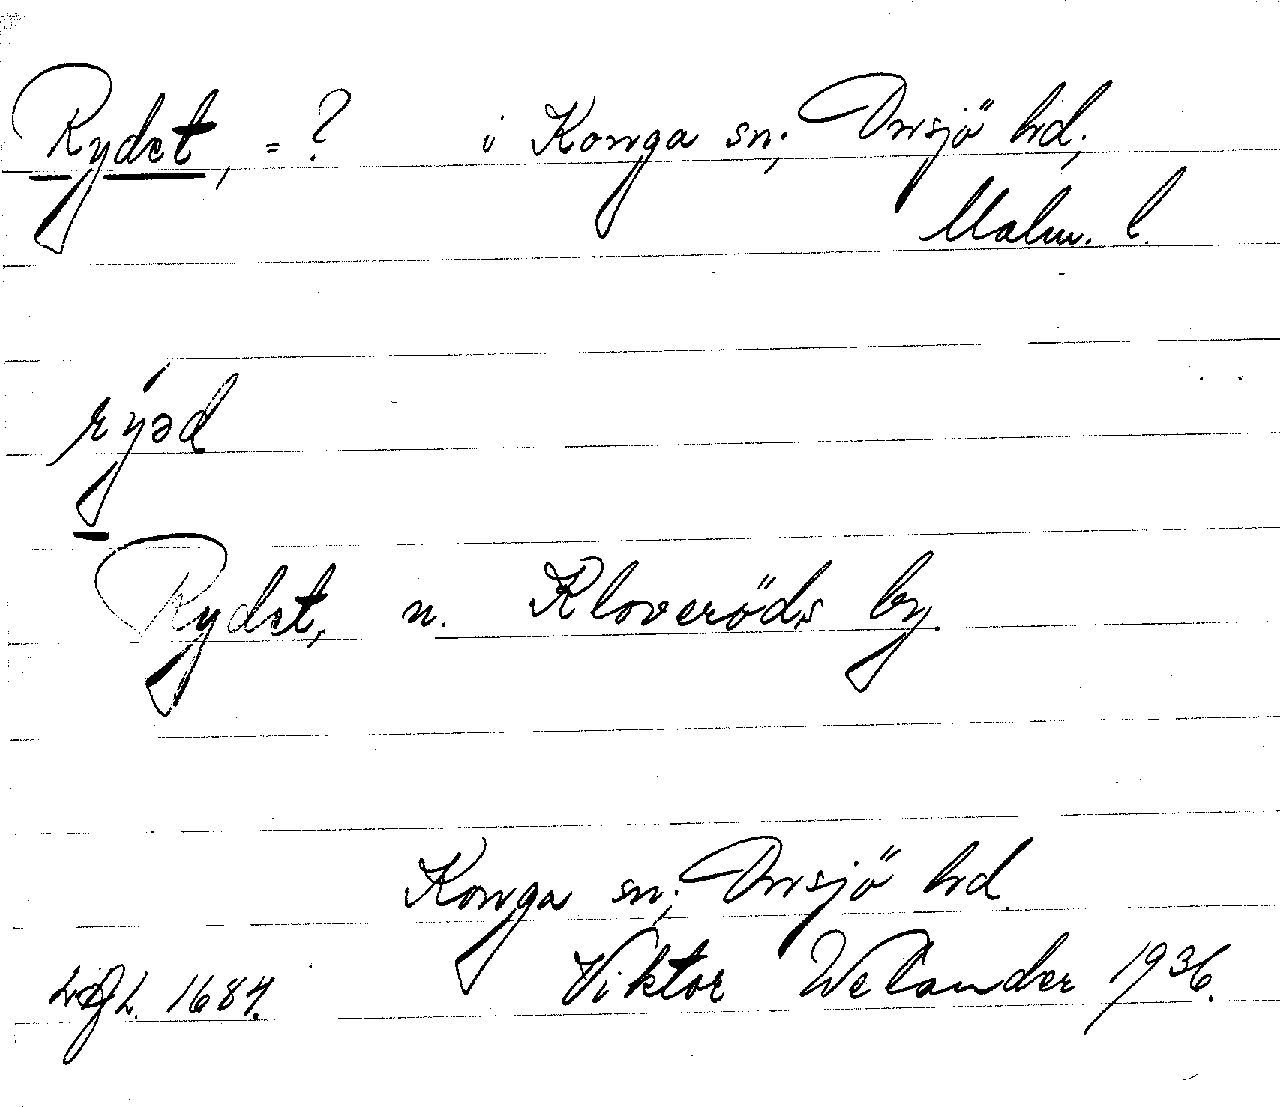 Rydet, = ? i Konga sn; Onsjö hd;
Malm. l.
rýəd
Rydet, n. Kloveröds by.
Konga sn; Onsjö hd.
1684. Viktor Welander 1936.